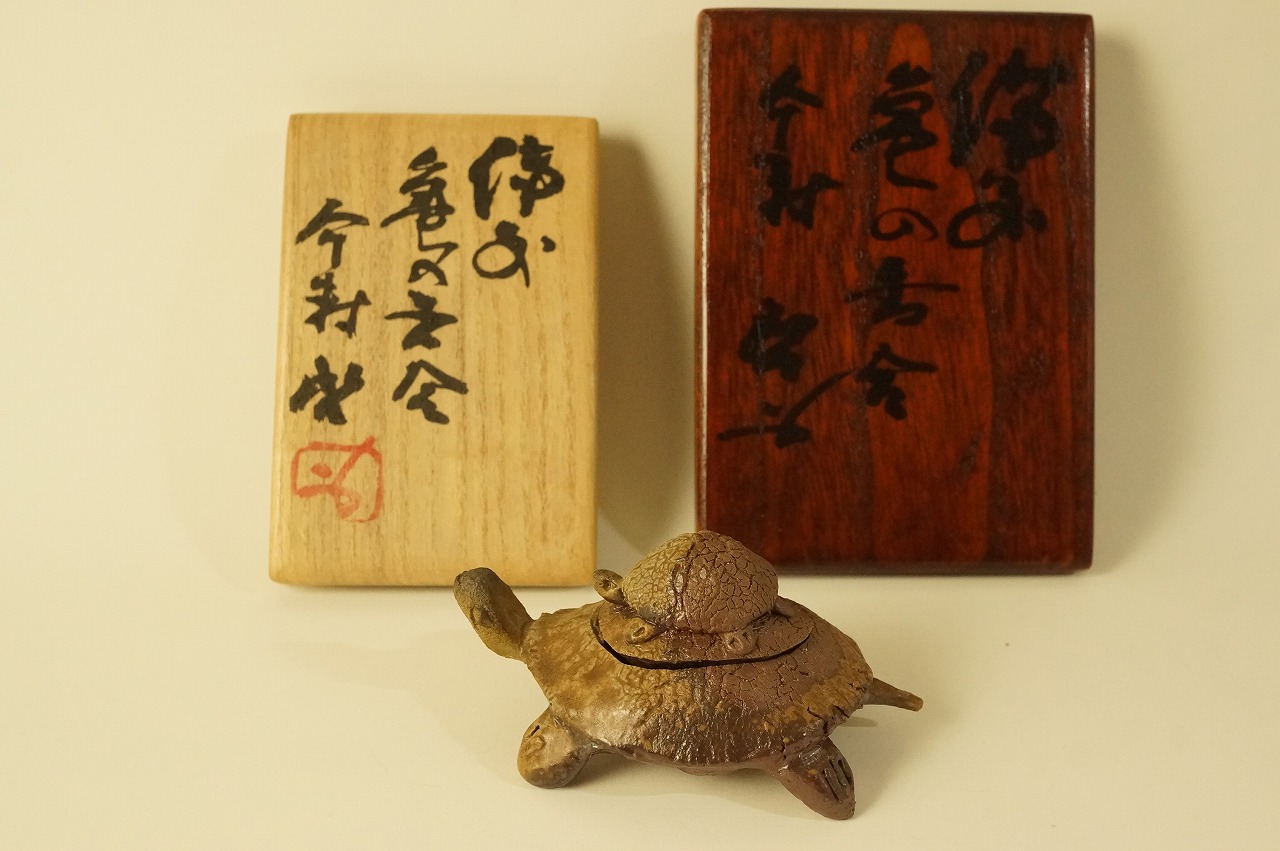 備前
亀の香合
今村
備前
亀の香合
今村